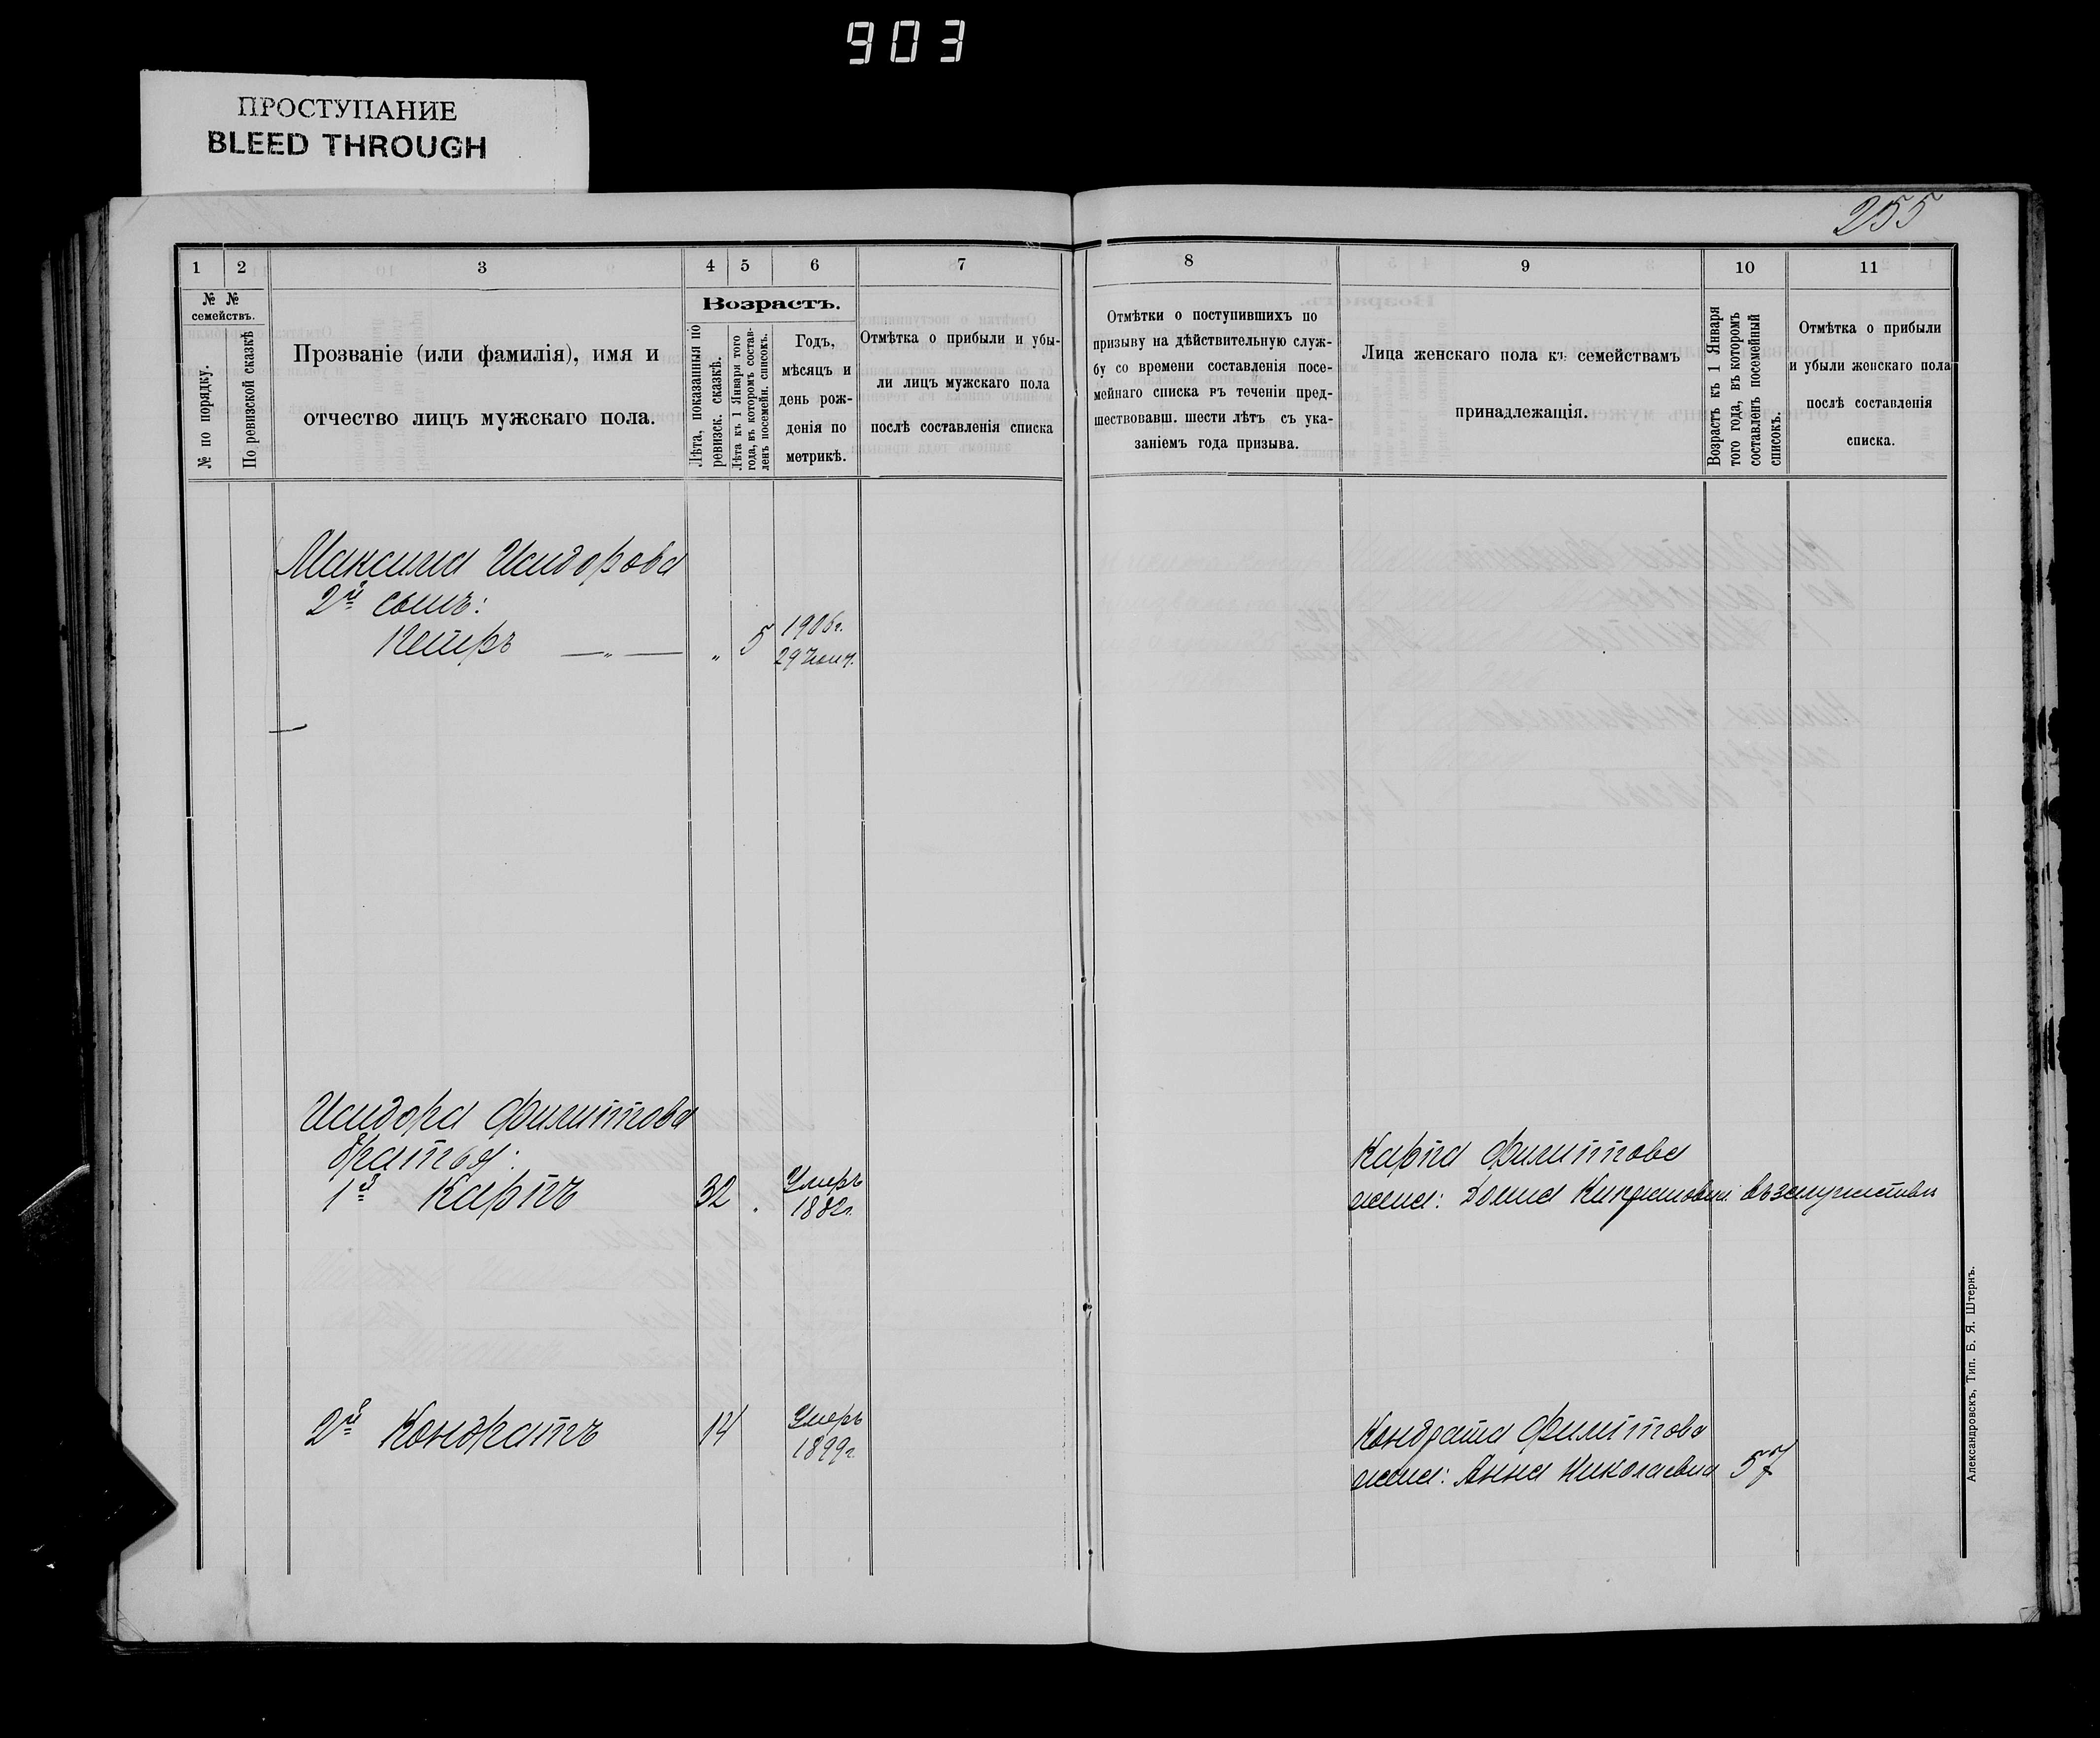 903
ПРОСТУПАНИЕ
BLEED THROUGH
255
1 2 3 4 5 6 7 8 9 10 11
№ № семействъ.
№ по порядку.
По ревизской сказкѣ
Прозваніе (или фамилія), имя и
отчество лицъ мужскаго пола.
Возрастъ.
Лѣта, показанныя по
ревизск. сказкѣ.
Лѣта къ 1 Января того
года, въ которомъ состав-
ленъ посемейн. списокъ.
Годъ,
мѣсяцъ и
день рож-
денія по
метрикѣ.
Отмѣтка о прибыли и убы-
ли лицъ мужскаго пола
послѣ составленія списка
Отмѣтки о поступившихъ по
призыву на дѣйствительную служ-
бу со времени составленія посе-
мейнаго списка въ теченіи пред-
шествовавш. шести лѣтъ съ ука-
заніемъ года призыва.
Лица женскаго пола къ семействамъ
принадлежащія.
Возрастъ къ 1 Января
того года, въ которомъ
составленъ посемейный
списокъ.
Отмѣтка о прибыли
и убыли женскаго пола
послѣ составленія
списка.
Максима Исидорова
2й сынъ:
Петръ — „ — „ 5 1906г.
29
Исидора Филиппова
братья:
1й Карпъ 32 . Умеръ
1882г.
Карпа Филиппова
жена: Домна въ замужествѣ
2й Кондратъ 14 Умеръ
1899г.
Кондрата Филиппова
жена: Анна Николаевна 57
Александровскъ, Тип. Б. Я. Штернъ.